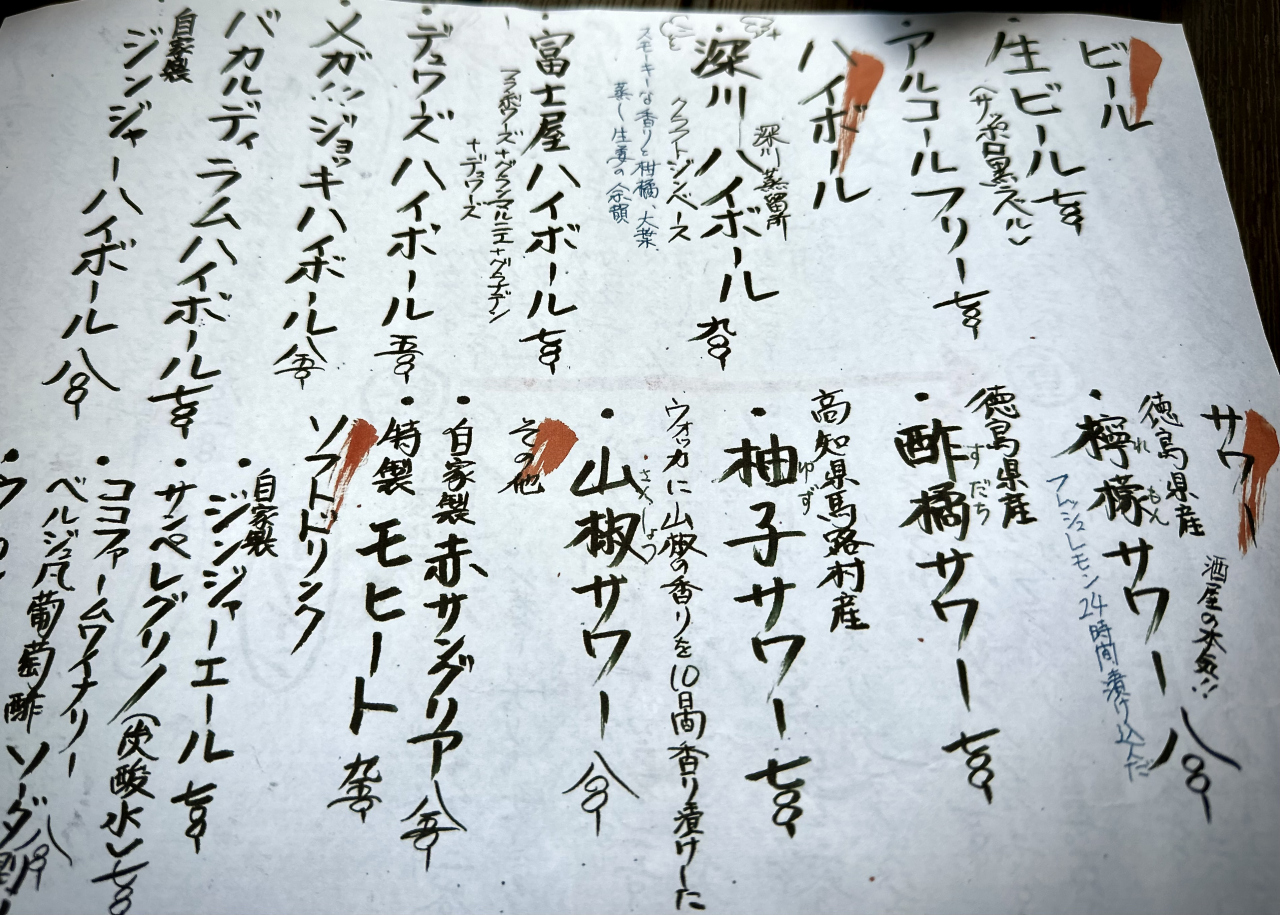 ビール
・生ビール 七〇〇
(サッポロ黒ラベル)
・アルコールフリー 七〇〇
ハイボール
深川蒸留所
・深川ハイボール 九〇〇
クラフトジンベース
スモーキーな香りと柑橘 大葉
蒸し生姜の余韻
・富士屋ハイボール 七〇〇
+デュワーズ
・デュワーズハイボール 五〇〇
・メガ!!!ジョッキハイボール 八五〇
・バカルディラムハイボール 七〇〇
自家製
ジンジャーハイボール 八〇〇
サワー
酒屋の本気!!
徳島県産
・檸檬サワー 八〇〇
れもん
フレッシュレモン24時間漬け込んだ
徳島県産
・酢橘サワー 七〇〇
すだち
高知県馬路村産
・柚子サワー 七〇〇
ゆず
ウォッカに山椒の香りを10日間香り漬けした
・山椒サワー 八〇〇
さんしょう
その他
・自家製赤サングリア 八五〇
・特製モヒート 九五〇
ソフトドリンク
自家製
・ジンジャーエール 七〇〇
・サンペレグリノ(炭酸水) 七〇〇
・ココファームワイナリー
ベルジュ風葡萄酢ソーダ割 八〇〇